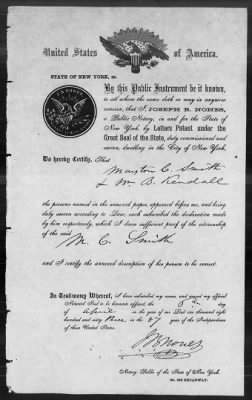 United States of America.
STATE OF NEW YORK, ss.
By this Public Instrument be it known,
to all whom the same doth or may in anywise
concern, that I, JOSEPH B. NONES,
a Public Notary, in and for the State of
New York, by Letters Patent under the
Great Seal of the State, duly commissioned and
sworn, dwelling in the City of New York,
J.B. NONES
Do hereby Certify, That
Marston C. Smith
& Wm B. Kendall
the persons named in the annexed paper, appeared before me, and being
duly sworn according to Law, each subscribed the declaration made
by him respectively, which I deem sufficient proof of the citizenship
of the said M. C. Smith
and I certify the annexed description of his person to be correct.
In Testimony Whereof, I have subscribed my name, and
Notarial Seal to be hereunto affixed the 8th day
of April in the year of our Lord one thousand eight
hundred and sixty three in the 87 year of the Independence
of these United States.
J B Nones
Notary Public of the State of New York.
BROADWAY.